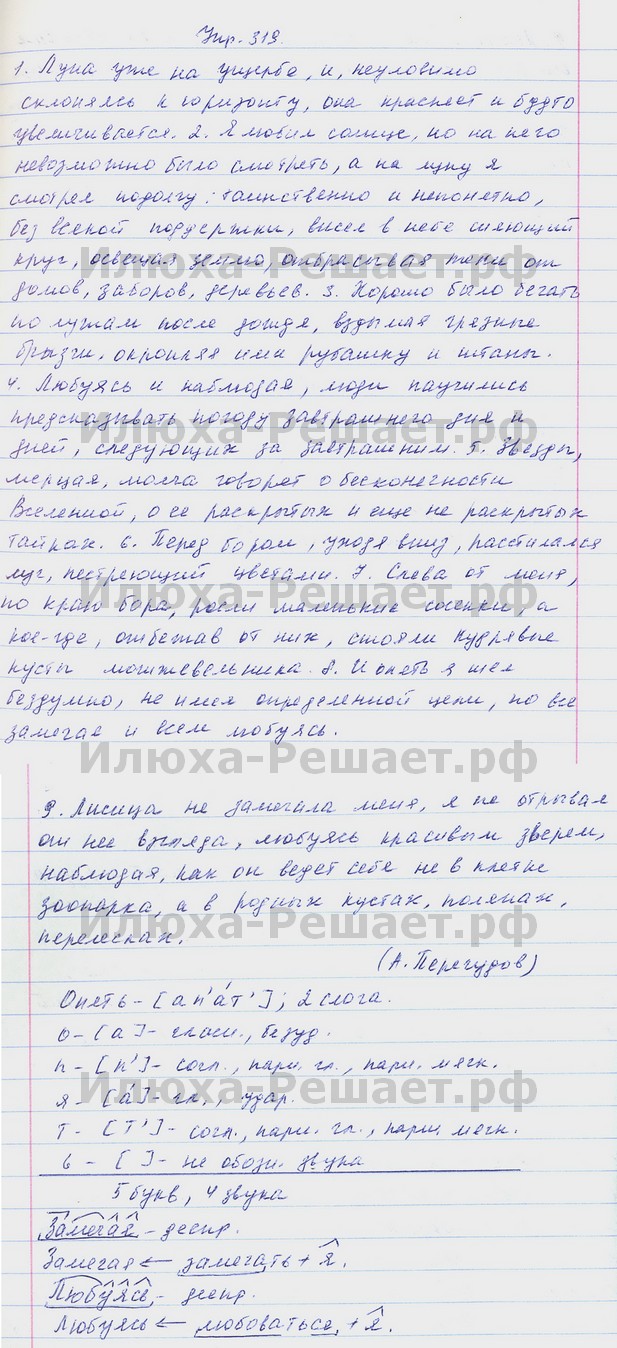 Упр. 319.
1. Луна уже на ущербе, и, неуловимо
склоняясь к горизонту, она краснеет и будто
увеличивается. 2. Я любил солнце, но на него
невозможно было смотреть, а на луну я
смотрел подолгу: таинственно и непонятно,
без всякой поддержки, висел в небе сияющий
круг, освещая землю, отбрасывая тени от
Илюха-Решает.рф
домов, заборов, деревьев. 3. Хорошо было бегать
по лужам после дождя, вздымая грязные
брызги, окропляя ими рубашку и штаны.
4. Любуясь и наблюдая, люди научились
предсказывать погоду завтрашнего дня и
Илюха-Решает.рф
дней, следующих за завтрашним. 5. Звезды,
мерцая, молча говорят о бесконечности
Вселенной, о ее раскрытых и еще не раскрытых
тайнах. 6. Перед бором, уходя вниз, расстилался
луг, пестреющий цветами. 7. Слева от меня,
Илюха-Решает.рф
по краю бора, росли маленькие сосенки, а
кое-где, отбежав от них, стояли кудрявые
кусты можжевельника. 8. И опять я шел
бездумно, не имея определенной цели, но все
замечая и всем любуясь.
Илюха-Решает.рф
9. Лисица не замечала меня, я не отрывал
от нее взгляда, любуясь красивым зверем,
наблюдая, как он ведет себя не в клетке
зоопарка, а в родных кустах, полянах,
Илюха-Решает.рф
перелесках.
(А. Перегудов)
Опять - [ап'а́т']; 2 слога.
о - [а] - гласн., безуд.
п - [п'] - согл., парн. гл., парн. мягк.
Илюха-Решает.рф
я - [а́] - гл., удар.
т - [т'] - согл., парн. гл., парн. мягк.
ь - [ ] - не обозн. звука
5 букв, 4 звука
Замечая - деепр.
Замечая ← замечать + я.
Любуясь - деепр.
Илюха-Решает.рф
Любуясь ← любоваться + я.